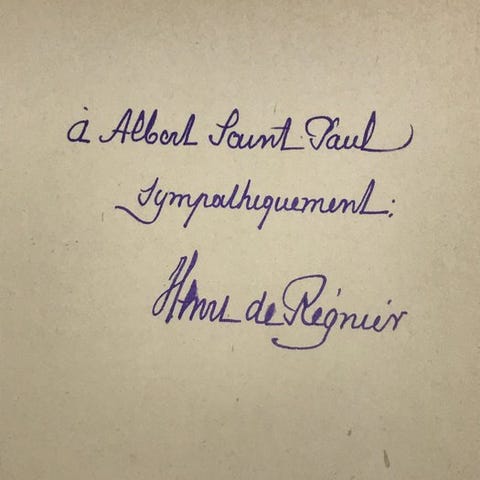 à Albert Saint-Paul
sympathiquement:
Henri de Régnier